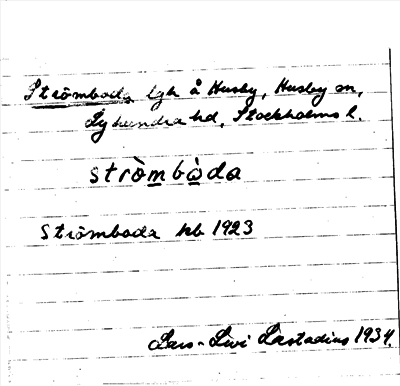 Strömboda lgh å Husby, Husby sn,
Lyhundra hd, Stockholms l.
strò̀mbò̀da
Strömboda hb 1923
Lars-Livi Læstadius 1934.